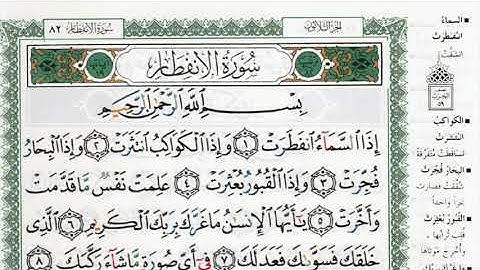 الجزء الثلاثون
سورة الانفطار ٨٢
سُورَةُ الِانفِطَارِ
بِسْمِ اللَّهِ الرَّحْمَٰنِ الرَّحِيمِ
إِذَا السَّمَاءُ انفَطَرَتْ ۝١ وَإِذَا الْكَوَاكِبُ انتَثَرَتْ ۝٢ وَإِذَا الْبِحَارُ
فُجِّرَتْ ۝٣ وَإِذَا الْقُبُورُ بُعْثِرَتْ ۝٤ عَلِمَتْ نَفْسٌ مَّا قَدَّمَتْ
وَأَخَّرَتْ ۝٥ يَٰأَيُّهَا الْإِنسَٰنُ مَا غَرَّكَ بِرَبِّكَ الْكَرِيمِ ۝٦ الَّذِي
خَلَقَكَ فَسَوَّىٰكَ فَعَدَلَكَ ۝٧ فِي أَيِّ صُورَةٍ مَّا شَاءَ رَكَّبَكَ ۝٨
السماءُ
انفَطَرَتْ
انشَقَّتْ
الحزب
٥٩
الكواكبُ
انتَثَرَتْ
تساقَطَتْ متفرّقة
البحارُ فُجِّرَتْ
شُقِّقَتْ فصارت
بحراً واحداً
القُبورُ بُعْثِرَتْ
قُلِبَ تُرابُها
وأُخرِجَ مَوتاها